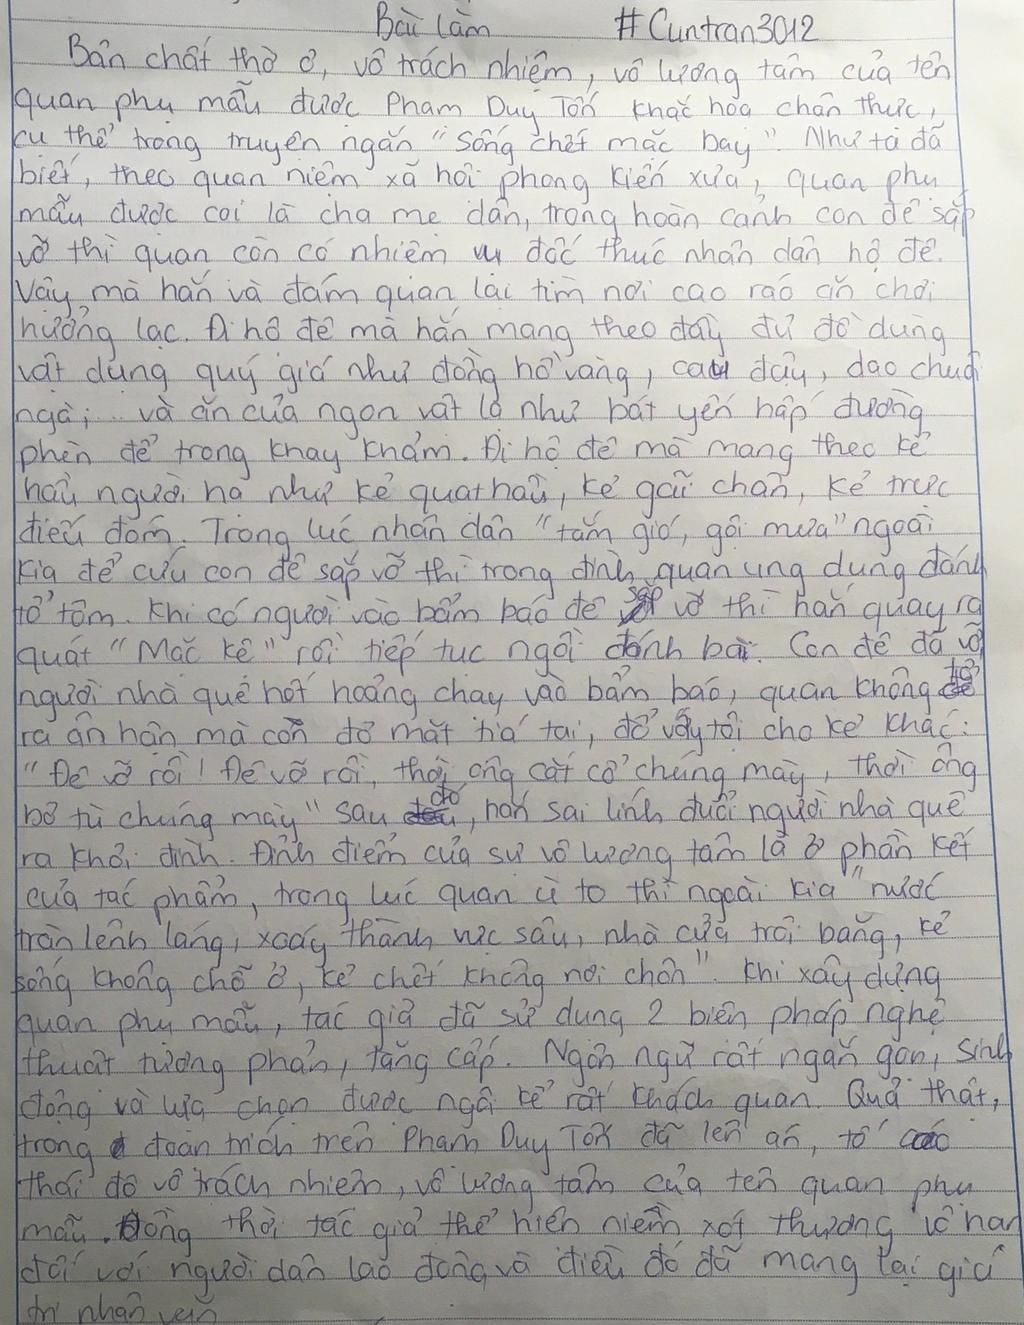 Bài làm #Cuntran3012
Bản chất thờ ơ, vô trách nhiệm, vô lương tâm của tên
quan phụ mẫu được Phạm Duy Tốn khắc họa chân thực,
cụ thể trong truyện ngắn "Sống chết mặc bay". Như ta đã
biết, theo quan niệm xã hội phong kiến xưa, quan phụ
mẫu được coi là cha mẹ dân, trong hoàn cảnh con đê sắp
vỡ thì quan còn có nhiệm vụ đốc thúc nhân dân hộ đê.
Vậy mà hắn và đám quan lại tìm nơi cao ráo ăn chơi
hưởng lạc. Đi hộ đê mà hắn mang theo đầy đủ đồ dùng
vật dụng quý giá như đồng hồ vàng, cau đậu, dao chuôi
ngà;... và ăn của ngon vật lạ như bát yến hấp đường
phèn để trong khay khảm. Đi hộ đê mà mang theo kẻ
hầu người hạ như kẻ quạt hầu, kẻ gãi chân, kẻ trực
điếu đóm. Trong lúc nhân dân "tắm gió, gội mưa" ngoài
kia để cứu con đê sắp vỡ thì trong đình, quan ung dung đánh
tổ tôm. Khi có người vào bẩm báo đê sắp vỡ thì hắn quay ra
quát "Mặc kệ" rồi tiếp tục ngồi đánh bài. Con đê đã vỡ
người nhà quê hốt hoảng chạy vào bẩm báo, quan không tỏ
ra ân hận mà còn đỏ mặt tía tai, đổ vấy tội cho kẻ khác:
"Đê vỡ rồi! Đê vỡ rồi, thời ông cắt cổ chúng mày, thời ông
bỏ tù chúng mày" sau đó, hắn sai lính đuổi người nhà quê
ra khỏi đình. Đỉnh điểm của sự vô lương tâm là ở phần kết
của tác phẩm, trong lúc quan ù to thì ngoài kia "nước
tràn lênh láng, xoáy thành vực sâu, nhà cửa trôi băng, kẻ
sống không chỗ ở, kẻ chết không nơi chôn". Khi xây dựng
quan phụ mẫu, tác giả đã sử dụng 2 biện pháp nghệ
thuật tương phản, tăng cấp. Ngôn ngữ rất ngắn gọn, sinh
động và lựa chọn được ngôi kể rất khách quan. Quả thật,
trong đoạn trích trên Phạm Duy Tốn đã lên án, tố cáo
thái độ vô trách nhiệm, vô lương tâm của tên quan phụ
mẫu. Đồng thời tác giả thể hiện niềm xót thương vô hạn
đối với người dân lao động và điều đó đã mang lại giá
trị nhân văn